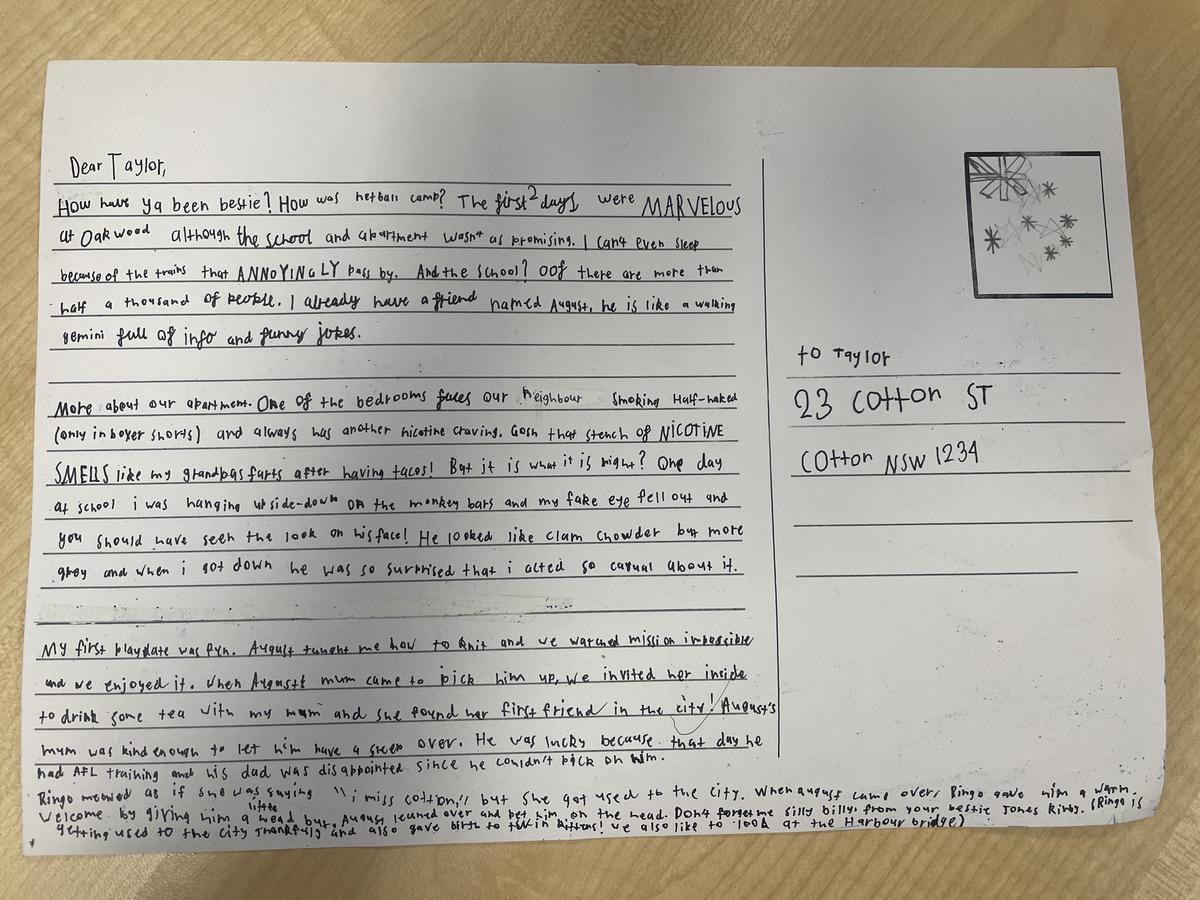 Dear Taylor,
How have ya been bestie? How was netball camp? The first 2 days were MARVELOUS
at Oakwood although the school and apartment wasn't as promising. I can't even sleep
because of the trains that ANNOYINGLY pass by. And the school? OOf there are more than
half a thousand of people. I already have a friend named August, he is like a walking
gemini full of info and funny jokes.
More about our apartment. One of the bedrooms faces our neighbour smoking Half-naked
(only in boxer shorts) and always has another nicotine craving. Gosh that stench of NICOTINE
SMELLS like my grandpas farts after having tacos! But it is what it is right? One day
at school i was hanging upside-down on the monkey bars and my fake eye fell out and
you should have seen the look on his face! He looked like clam chowder but more
grey and when i got down he was so surprised that i acted so casual about it.
My first playdate was fun. August taught me how to knit and we watched mission impossible
and we enjoyed it. When August's mum came to pick him up, we invited her inside
to drink some tea with my mum and she found her first friend in the city! August's
mum was kind enough to let him have a sleep over. He was lucky because that day he
had AFL training and his dad was disappointed since he couldn't pick on him.
Ringo meowed as if she was saying "i miss cotton," but she got used to the city. When august came over Ringo gave him a warm
welcome by giving him a little head but, August leaned over and pet him on the head. Don't forget me silly billy from your bestie Jones Kirby. (Ringo is
getting used to the city thankfuly and also gave birth to twin kittens! we also like to look at the Harbour bridge)
to Taylor
23 cotton ST
cotton NSW 1234